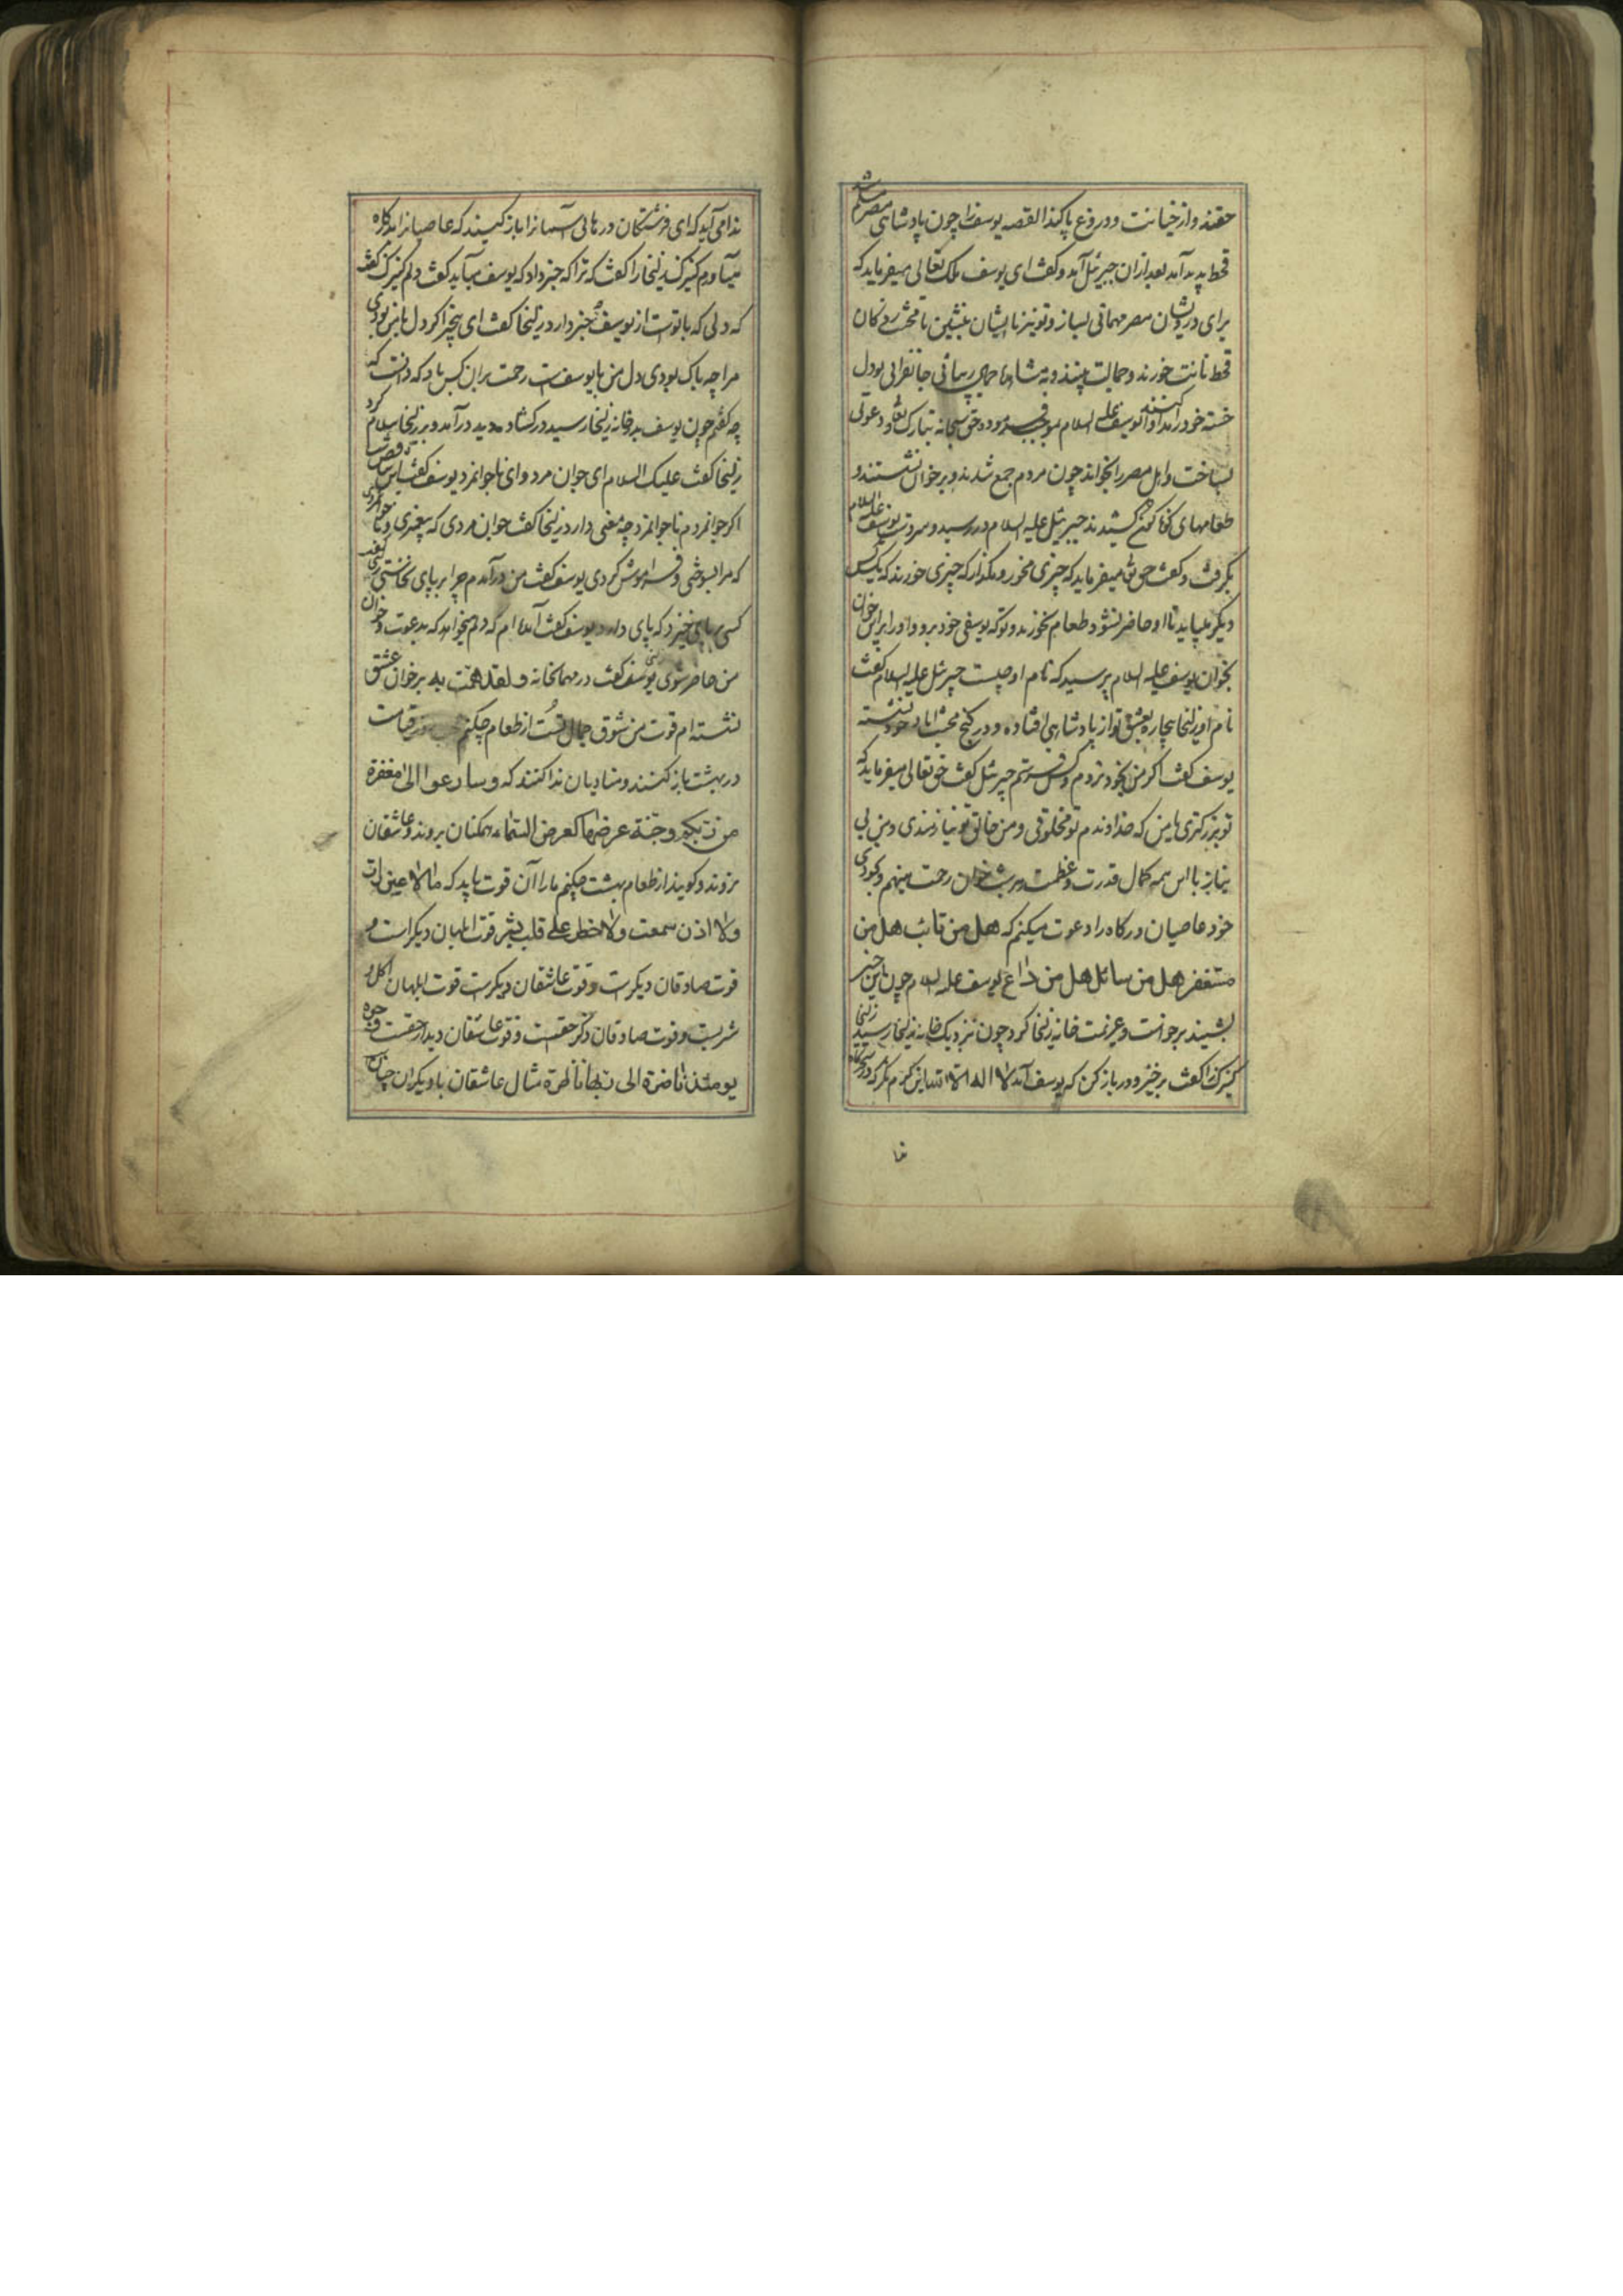 حقند و از خیانت و دروغ پاکند القصه یوسف را چون پادشاهی مصر مسلم شد
قحط پدید آمد بعد ازان جبرئیل آمد و گفت ای یوسف ملک تعالی میفرماید که
برای درویشان مصر مهمانی بساز و تو نیز با ایشان بنشین تا محنت زدگان
قحط نانت خورند و جمالت بینند و به مشاهده جمال جانفزای تو دل
خسته خود را یوسف علیه السلام بموجب فرموده حق سبحانه تبارک و تعالی دعوتی
بساخت و اهل مصر را بخواند چون مردم جمع شدند و بر خوان نشستند و
طعامهای کوناکون کشیدند جبرئیل علیه السلام در رسید و سر دست یوسف علیه السلام
بگرفت و گفت حق تعالی میفرماید که چیزی مخور و مگذار که چیزی خورند که یککس
دیگر میباید تا او حاضر نشود طعام نخورند و تو که یوسفی خود برو و او را برین خوان
بخوان یوسف علیه السلام پرسید که نام او چیست جبرئیل علیه السلام گفت
نام او زلیخا بیچاره بعشق تو از پادشاهی افتاده و در کنج محنت اباد خود نشسته
یوسف گفت اگر من بخود نروم و کس فرستم جبرئیل گفت حق تعالی میفرماید که
تو بزرگتری یا من که خداوندم تو مخلوقی و من خالق تو نیازمندی و من بی
نیاز با این همه کمال قدرت و عظمت هر شب خوان رحمت مینهم و بخودی
خود عاصیان درگاه را دعوت میکنم که هل من تائب هل من
مستغفر هل من سائل هل من داع یوسف علیه السلام چون این خبر
بشنید برخواست و عزیمت خانه زلیخا کرد چون نزدیک خانه زلیخا رسید زلیخا
کنیزک را گفت برخیز و در باز کن که یوسف آمد لا اله الا الله این کرم نگر که در سحرگاه
ندا
ندا می آید که ای فرشتگان درهای آسمانرا باز کنید که عاصیانرا بدرگاه
میآورم کنیزک زلیخا را گفت که ترا که خبر داد که یوسف میآید گفت دلم کنیزک گفت
که دلی که با تو است از یوسف خبر دارد زلیخا گفت ای بیخبر اگر دل با من بودی
مرا چه باک بودی دل من با یوسفست رحمت بران کس باد که دانست که
چه گفتم چون یوسف بدر خانه زلیخا رسید در گشاده دید درآمد و بر زلیخا سلام کرد
زلیخا گفت علیک السلام ای جوان مرد و ای ناجوانمرد یوسف گفت این تناقض
اگر جوانمردم ناجوانمرد چه معنی دارد زلیخا گفت جوان مردی که پیغمبری و ناجوانمردی
که مرا بسوختی و فراموش کردی یوسف گفت من درآمدم چرا بر پای نخاستی زلیخا گفت
کسی بپای خیزد که پای دارد یوسف گفت آمده ام که دلم میخواهد که بدعوت و خوان
من حاضر شوی یوسف گفت در مهمانخانه و لقد همت به بر خوان عشق
نشسته ام قوت من شوق جمال تست از طعام چکنم قیامت
در بهشت باز کنند و منادیان ندا کنند که و سارعوا الی مغفرة
من ربکم و جنة عرضها کعرض السماء همکنان بروند و عاشقان
نروند و گویند از طعام بهشت چکنم ما را آن قوت باید که ما لا عین رات
و لا اذن سمعت و لا خطر علی قلب بشر قوت ابلهان دیگر است و
قوت صادقان دیگرست و قوت عاشقان دیگرست قوت ابلهان اکل و
شربست و قوت صادقان ذکر حقست و قوت عاشقان دیدار حقست وجوه
یومئذ ناضرة الی ربها ناظرة مثال عاشقان با دیگران چنان